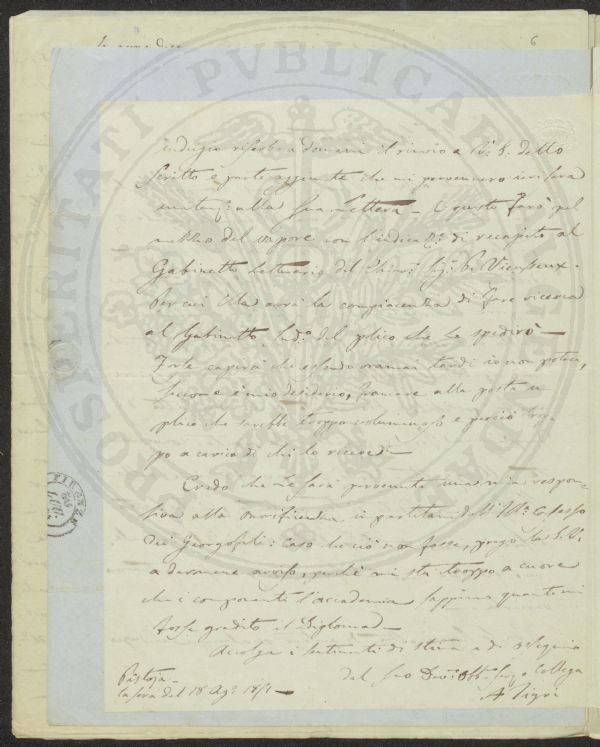 6
indugio riserbo a domani il rinvio a di detto
scritto e parti aggiunte che mi pervennero ieri sera
alla sua lettera — E questo farò pel
mezzo del vapore con l'indica di recapito al
Gabinetto Letterario del Sig. Vieusseux.
Per cui Ella avrà la compiacenza di fare ricerca
al Gabinetto del plico che Le spedirò —
Forse capirà che essendo oramai tardi io non poteva,
siccome è mio desiderio, francare alla posta un
plico che sarebbe troppo voluminoso e perciò trop-
po a carico di chi lo riceve. —
Credo che Le sarà pervenuta una mia respon-
siva alla
dei Georgofili: Caso che ciò non fosse, prego la S. V.
a darmene avviso, perché mi sta troppo a cuore
che i componenti l'accademia sappiano quanto mi
fosse gradito il Diploma —
Accolga i sentimenti di stima e di ossequio
del suo Collega
Pistoja —
la sera del 18 Ag. 1851 —
A Tigri
PROSPERITATI PVBLICAE
FIRENZE